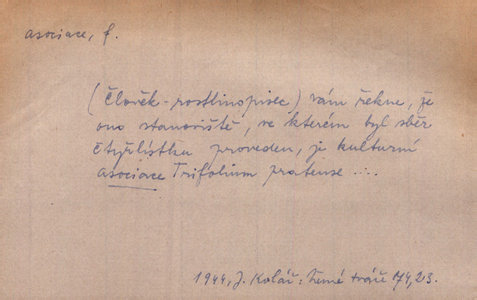 asociace, f.
(Člověk-rostlinopisec) vám řekne, že
ono stanoviště, ve kterém byl sběr
čtyřlístku proveden, je kulturní
asociace Trifolium pratense ....
1944, J. Kolář: Němé tváře 174,23.